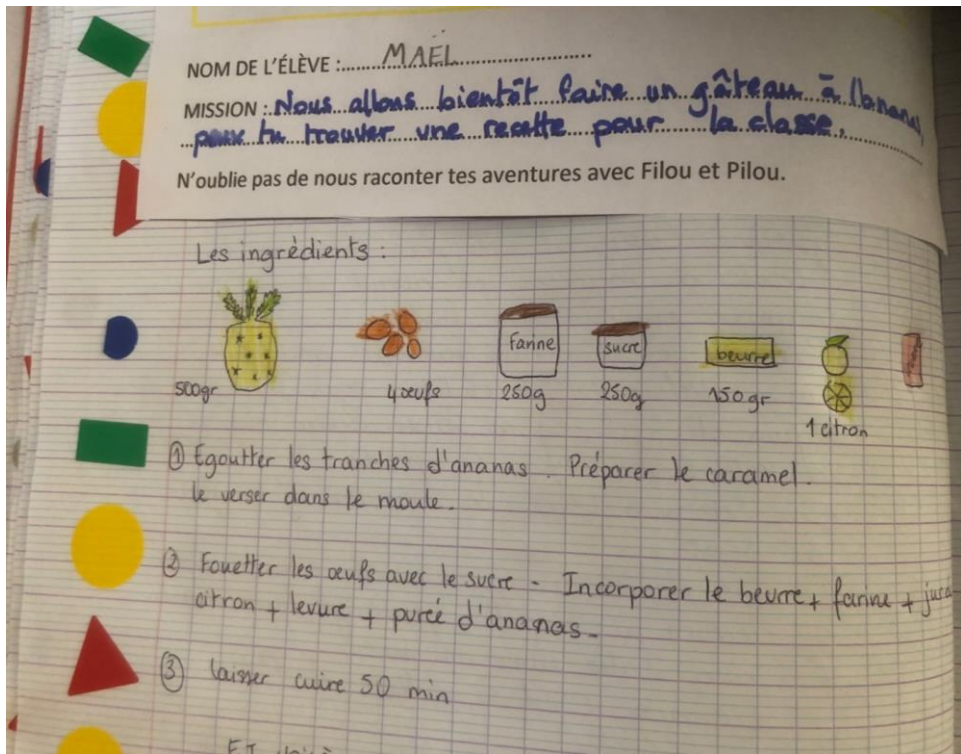 NOM DE L'ÉLÈVE :...... MAËL ......
MISSION : Nous allons bientôt faire un gâteau à l'ananas,
peux tu trouver une recette pour la classe.
N'oublie pas de nous raconter tes aventures avec Filou et Pilou.
Les ingrédients :
farine sucre beurre
500gr 4 œufs 250g 250g 150 gr
1 citron
① Egoutter les tranches d'ananas. Préparer le caramel.
le verser dans le moule.
② Fouetter les œufs avec le sucre - Incorporer le beurre + farine +
citron + levure + purée d'ananas -
③ laisser cuire 50 min
ET